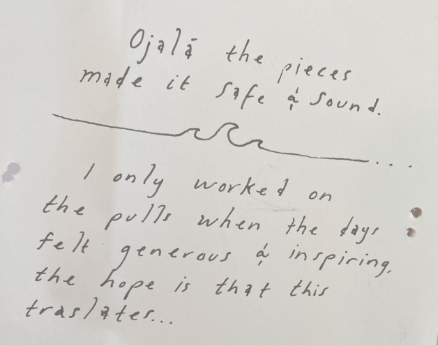 Ojalá the pieces
made it safe & sound.
...
I only worked on
the pulls when the days
felt generous & inspiring,
the hope is that this
traslates...